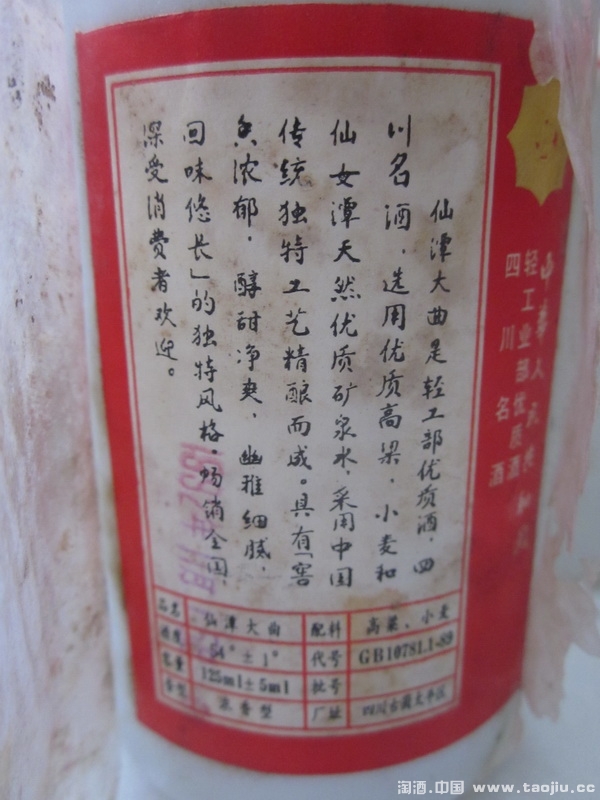 仙潭大曲是轻工部优质酒，四
川名酒，选用优质高梁，小麦和
仙女潭天然优质矿泉水，采用中国
传统独特工艺精酿而成。具有「窖
香浓郁，醇甜净爽，幽雅细腻，
回味悠长」的独特风格，畅销全国，
深受消费者欢迎。
品名 仙潭大曲 配料 高粱、小麦
酒度 54°±1° 代号 GB10781.1-89
容量 125ml±5ml 批号
香型 浓香型 厂址 四川古蔺太平区
轻工业部优质酒
四川名酒
淘酒.中国 www.taojiu.cc